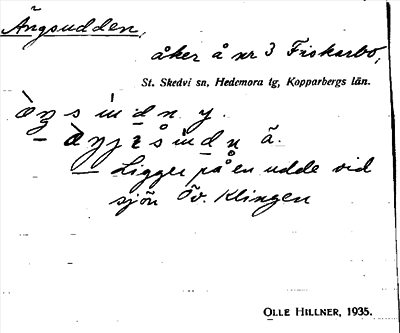 Ängsudden,
åker å nr 3 Fiskarbo,
St. Skedvi sn, Hedemora tg, Kopparbergs län.
y.
ä.
— Ligger på en udde vid
sjön Öv. Klingen
OLLE HILLNER, 1935.